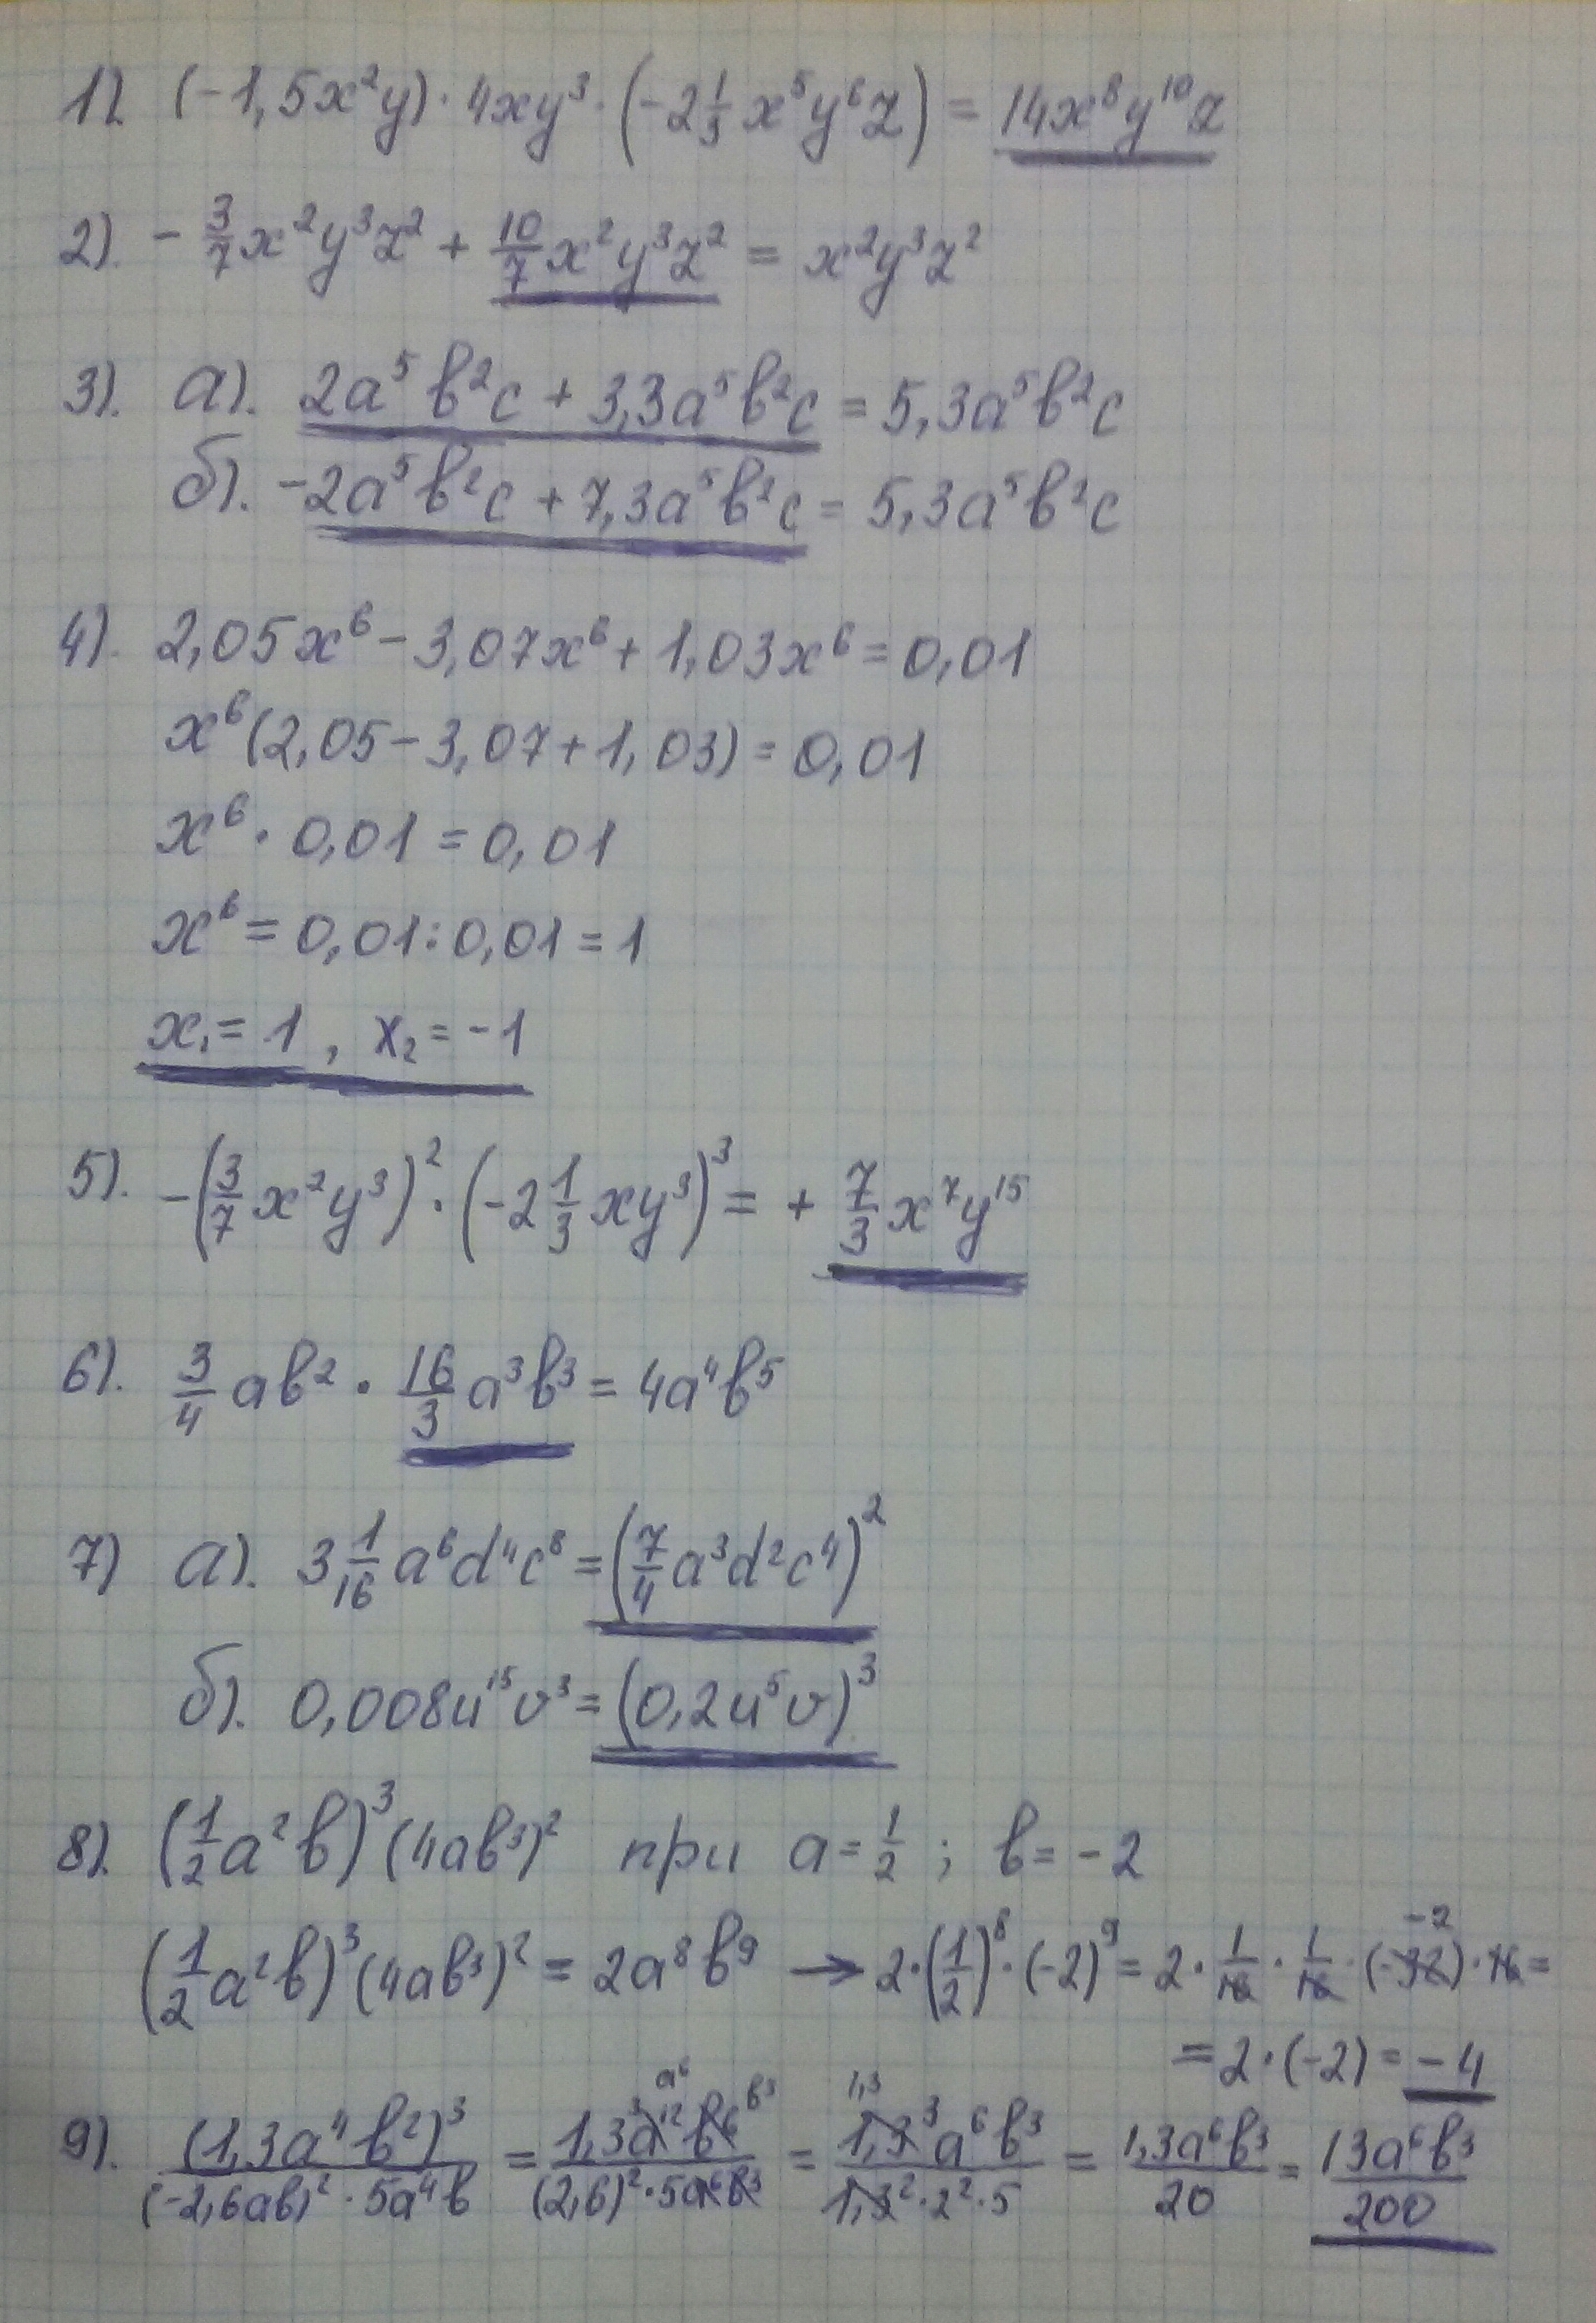 1). (-1,5x²y)·4xy³·(-2 1/3 x⁵y⁶z) = 14x⁸y¹⁰z
2). - 3/7 x²y³z² + 10/7 x²y³z² = x²y³z²
3). а). 2a⁵b²c + 3,3a⁵b²c = 5,3a⁵b²c
б). -2a⁵b²c + 7,3a⁵b²c = 5,3a⁵b²c
4). 2,05x⁶ - 3,07x⁶ + 1,03x⁶ = 0,01
x⁶(2,05 - 3,07 + 1,03) = 0,01
x⁶ · 0,01 = 0,01
x⁶ = 0,01 : 0,01 = 1
x₁ = 1, x₂ = -1
5). -(3/7 x²y³)² · (-2 1/3 xy³)³ = + 7/3 x⁷y¹⁵
6). 3/4 ab² · 16/3 a³b³ = 4a⁴b⁵
7) а). 3 1/16 a⁶d⁴c⁸ = (7/4 a³d²c⁴)²
б). 0,008u¹⁵v³ = (0,2u⁵v)³
8). (1/2 a²b)³(4ab³)² при a = 1/2 ; b = -2
(1/2 a²b)³(4ab³)² = 2a⁸b⁹ → 2·(1/2)⁸·(-2)⁹ = 2 · 1/16 · 1/16 · (-32)·16 =
-2
= 2·(-2) = -4
a⁶ b³ 1,3
9). (1,3a⁴b²)³/((-2,6ab)²·5a⁴b) = 1,3³a¹²b⁶/((2,6)²·5a⁶b³) = 1,3³a⁶b³/(1,3²·2²·5) = 1,3a⁶b³/20 = 13a⁶b³/200